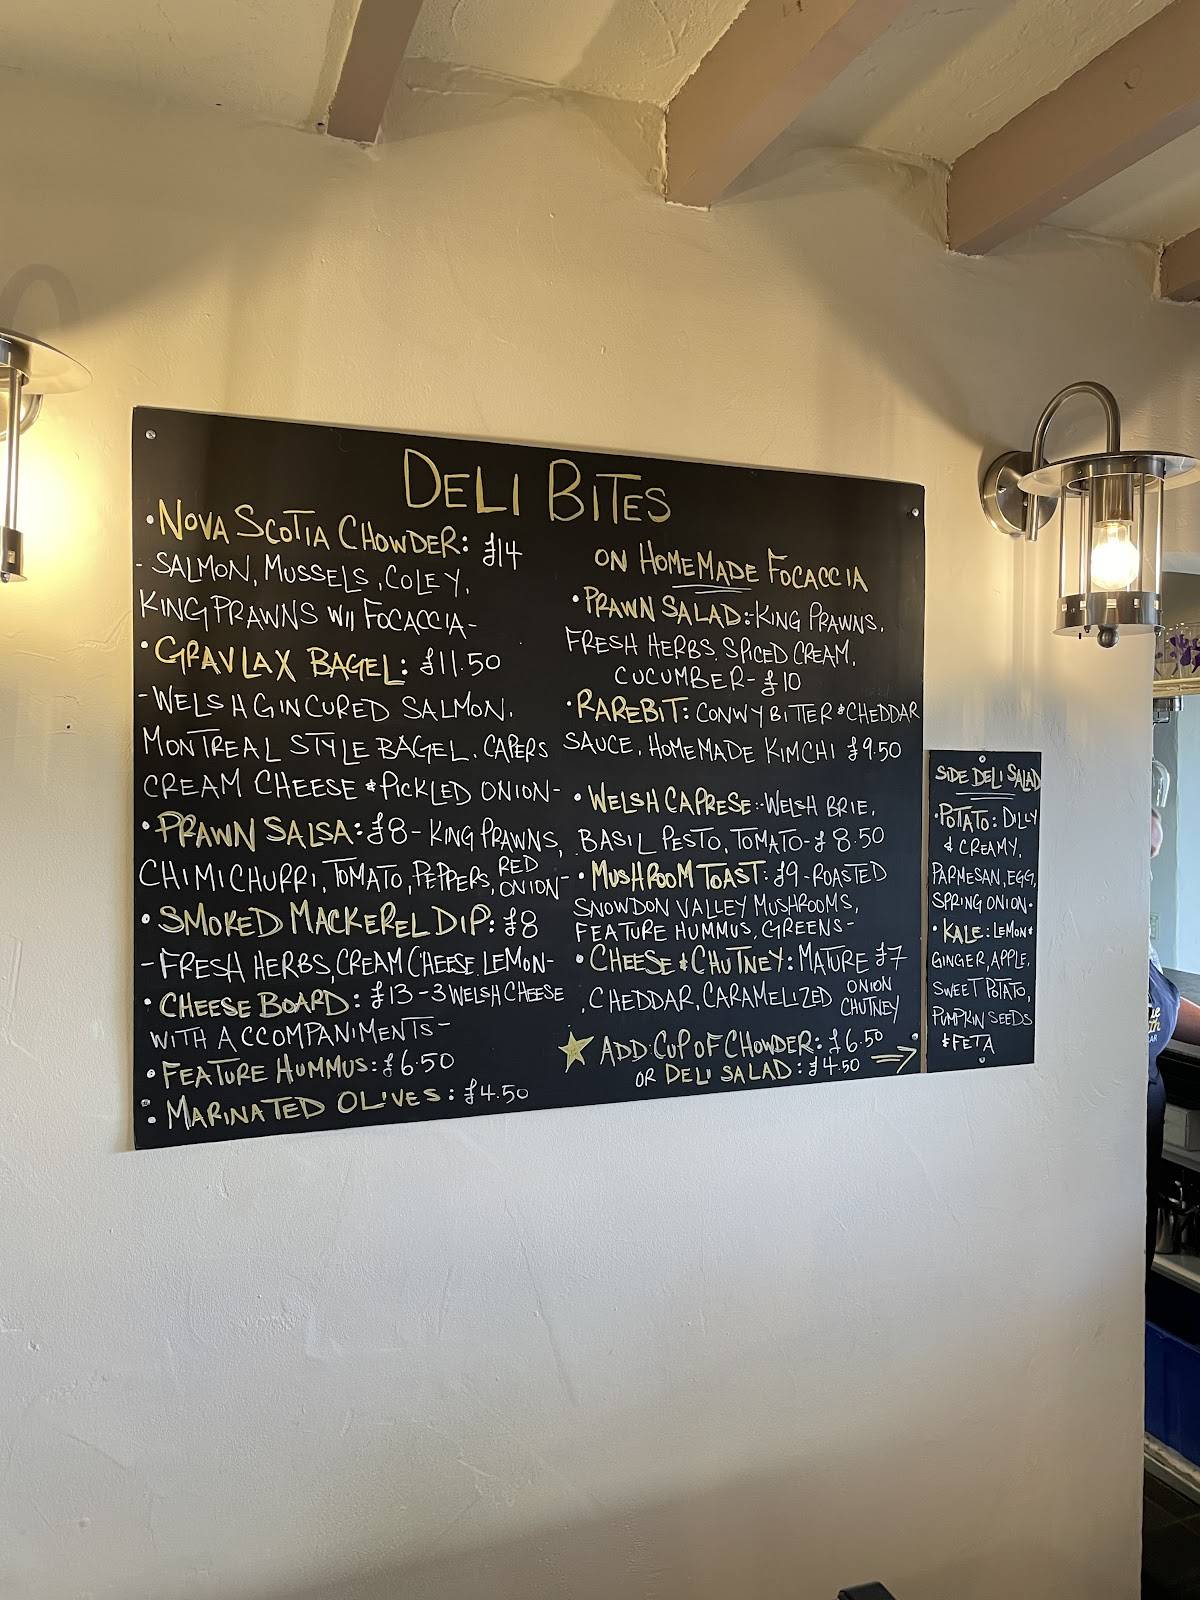 DELI BITES
•NOVA SCOTIA CHOWDER: £14
-SALMON, MUSSELS, COLEY,
KING PRAWNS W// FOCACCIA-
•GRAVLAX BAGEL: £11.50
-WELSH GIN CURED SALMON.
MONTREAL STYLE BAGEL. CAPERS
CREAM CHEESE & PICKLED ONION-
•PRAWN SALSA: £8 - KING PRAWNS,
CHIMICHURRI, TOMATO, PEPPERS, RED ONION-
•SMOKED MACKEREL DIP: £8
-FRESH HERBS, CREAM CHEESE. LEMON-
•CHEESE BOARD: £13 - 3 WELSH CHEESE
WITH ACCOMPANIMENTS-
•FEATURE HUMMUS: £6.50
•MARINATED OLIVES: £4.50
ON HOMEMADE FOCACCIA
•PRAWN SALAD:-KING PRAWNS.
FRESH HERBS. SPICED CREAM.
CUCUMBER- £10
•RAREBIT: CONWY BITTER & CHEDDAR
SAUCE. HOMEMADE KIMCHI £9.50
•WELSH CAPRESE:-WELSH BRIE,
BASIL PESTO, TOMATO- £8.50
•MUSHROOM TOAST: £9 -ROASTED
SNOWDON VALLEY MUSHROOMS,
FEATURE HUMMUS, GREENS-
•CHEESE & CHUTNEY: MATURE £7
CHEDDAR, CARAMELIZED ONION CHUTNEY
ADD CUP OF CHOWDER: £6.50
OR DELI SALAD: £4.50
SIDE DELI SALAD
•POTATO: DILLY
& CREAMY,
PARMESAN, EGG,
SPRING ONION.
•KALE: LEMON &
GINGER, APPLE,
SWEET POTATO,
PUMPKIN SEEDS
& FETA